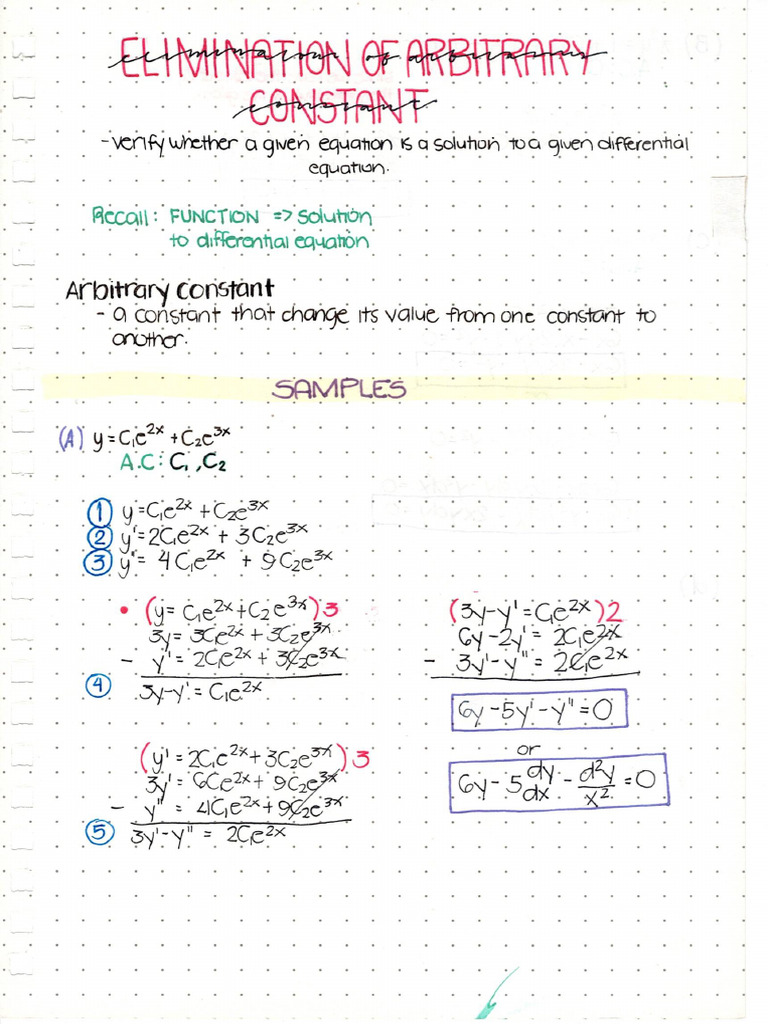 ELIMINATION OF ARBITRARY
CONSTANT
-verify whether a given equation is a solution to a given differential
equation.
Recall: FUNCTION => solution
to differential equation
Arbitrary constant
- a constant that change its value from one constant to
another.
SAMPLES
(A) y=C₁e²ˣ+C₂e³ˣ
A.C: C₁,C₂
① y=C₁e²ˣ+C₂e³ˣ
② y'=2C₁e²ˣ + 3C₂e³ˣ
③ y"= 4C₁e²ˣ + 9C₂e³ˣ
• (y= C₁e²ˣ+C₂e³ˣ)3
3y= 3Ce²ˣ + 3C₂e³ˣ
- y'= 2C₁e²ˣ + 3C₂e³ˣ
④ 3y-y'= C₁e²ˣ
(y'= 2C₁e²ˣ+3C₂e³ˣ)3
3y'= 6Ce²ˣ+ 9C₂e³ˣ
- y" = 4C₁e²ˣ+9C₂e³ˣ
⑤ 3y'-y" = 2C₁e²ˣ
(3y-y'=C₁e²ˣ)2
6y-2y'= 2C₁e²ˣ
- 3y'-y" = 2C₁e²ˣ
6y-5y'-y"=0
or
6y-5 dy/dx - d²y/x² =0